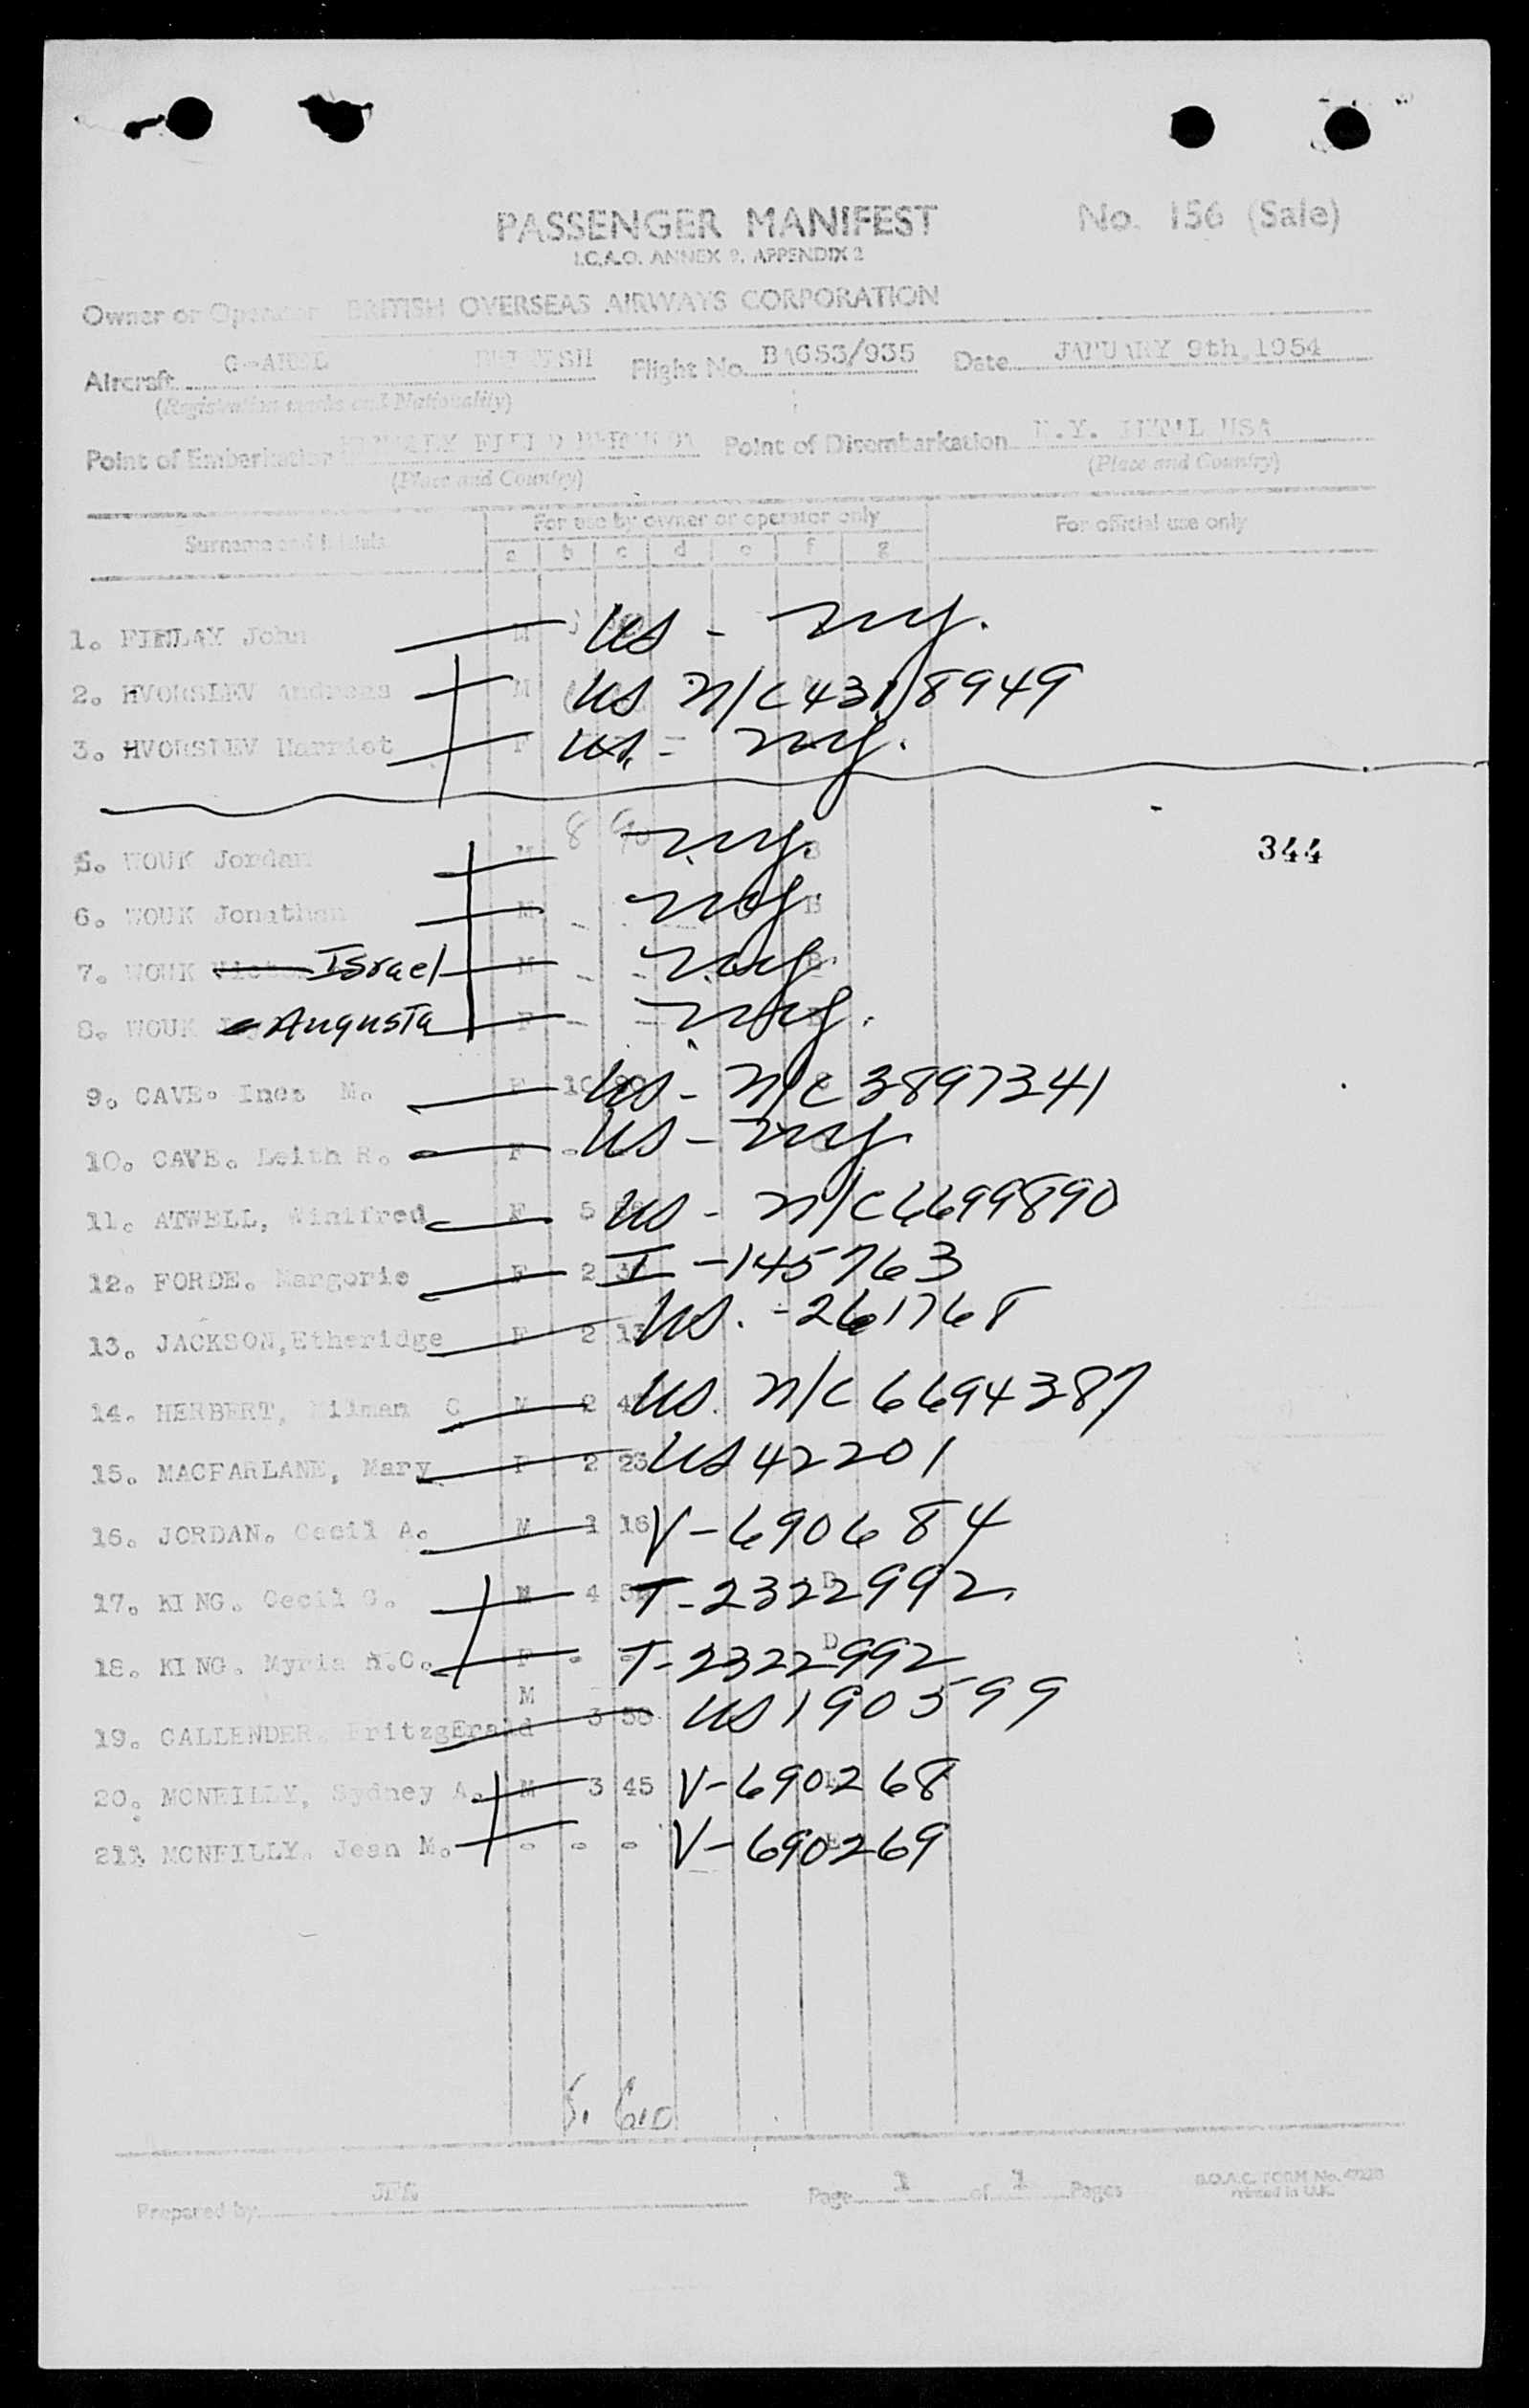 PASSENGER MANIFEST No. 156 (Sale)
I.C.A.O. ANNEX 9, APPENDIX 2
Owner or Operator BRITISH OVERSEAS AIRWAYS CORPORATION
Aircraft Flight No. BA653/935 Date JANUARY 9th, 1954
(Registration marks and Nationality)
Point of Embarkation Point of Disembarkation N.Y. INT'L USA
(Place and Country) (Place and Country)
For use by owner or operator only For official use only
Surname and Initials a b c d e f g
1. FINLAY John M US - NY.
2. HVORSLEV Andreas M US N/C 4318949
3. HVORSLEV Harriet F US. - NY.
5. WOUK Jordan M 8 90 NY. B 344
6. WOUK Jonathan M - NY. B
7. WOUK Israel M - - NY. B
8. WOUK Augusta F - - NY.
9. CAVE. Inez M. F 10 US - N/C 3897341
10. CAVE. Leith R. F - US - NY
11. ATWELL, Winifred F 5 US - N/C 6699890
12. FORDE. Margorie F 2 I - 145763
13. JACKSON, Etheridge F 2 13 US. - 261768
14. HERBERT, Hilman C M 2 US. N/C 6694387
15. MACFARLANE, Mary F 2 23 US 42201
16. JORDAN. Cecil A. M 1 16 V - 690684
17. KING. Cecil G. M 4 T - 2322992
18. KING. Myria H.C. F - - T - 2322992 D
19. CALLENDER. FritzgErald M 3 58 US 190599
20. MCNEILLY, Sydney A. M 3 45 V - 690268
21. MCNEILLY. Jean M. - - - V - 690269
Prepared by JFA Page 1 of 1 Pages B.O.A.C. FORM No.
Printed in U.K.